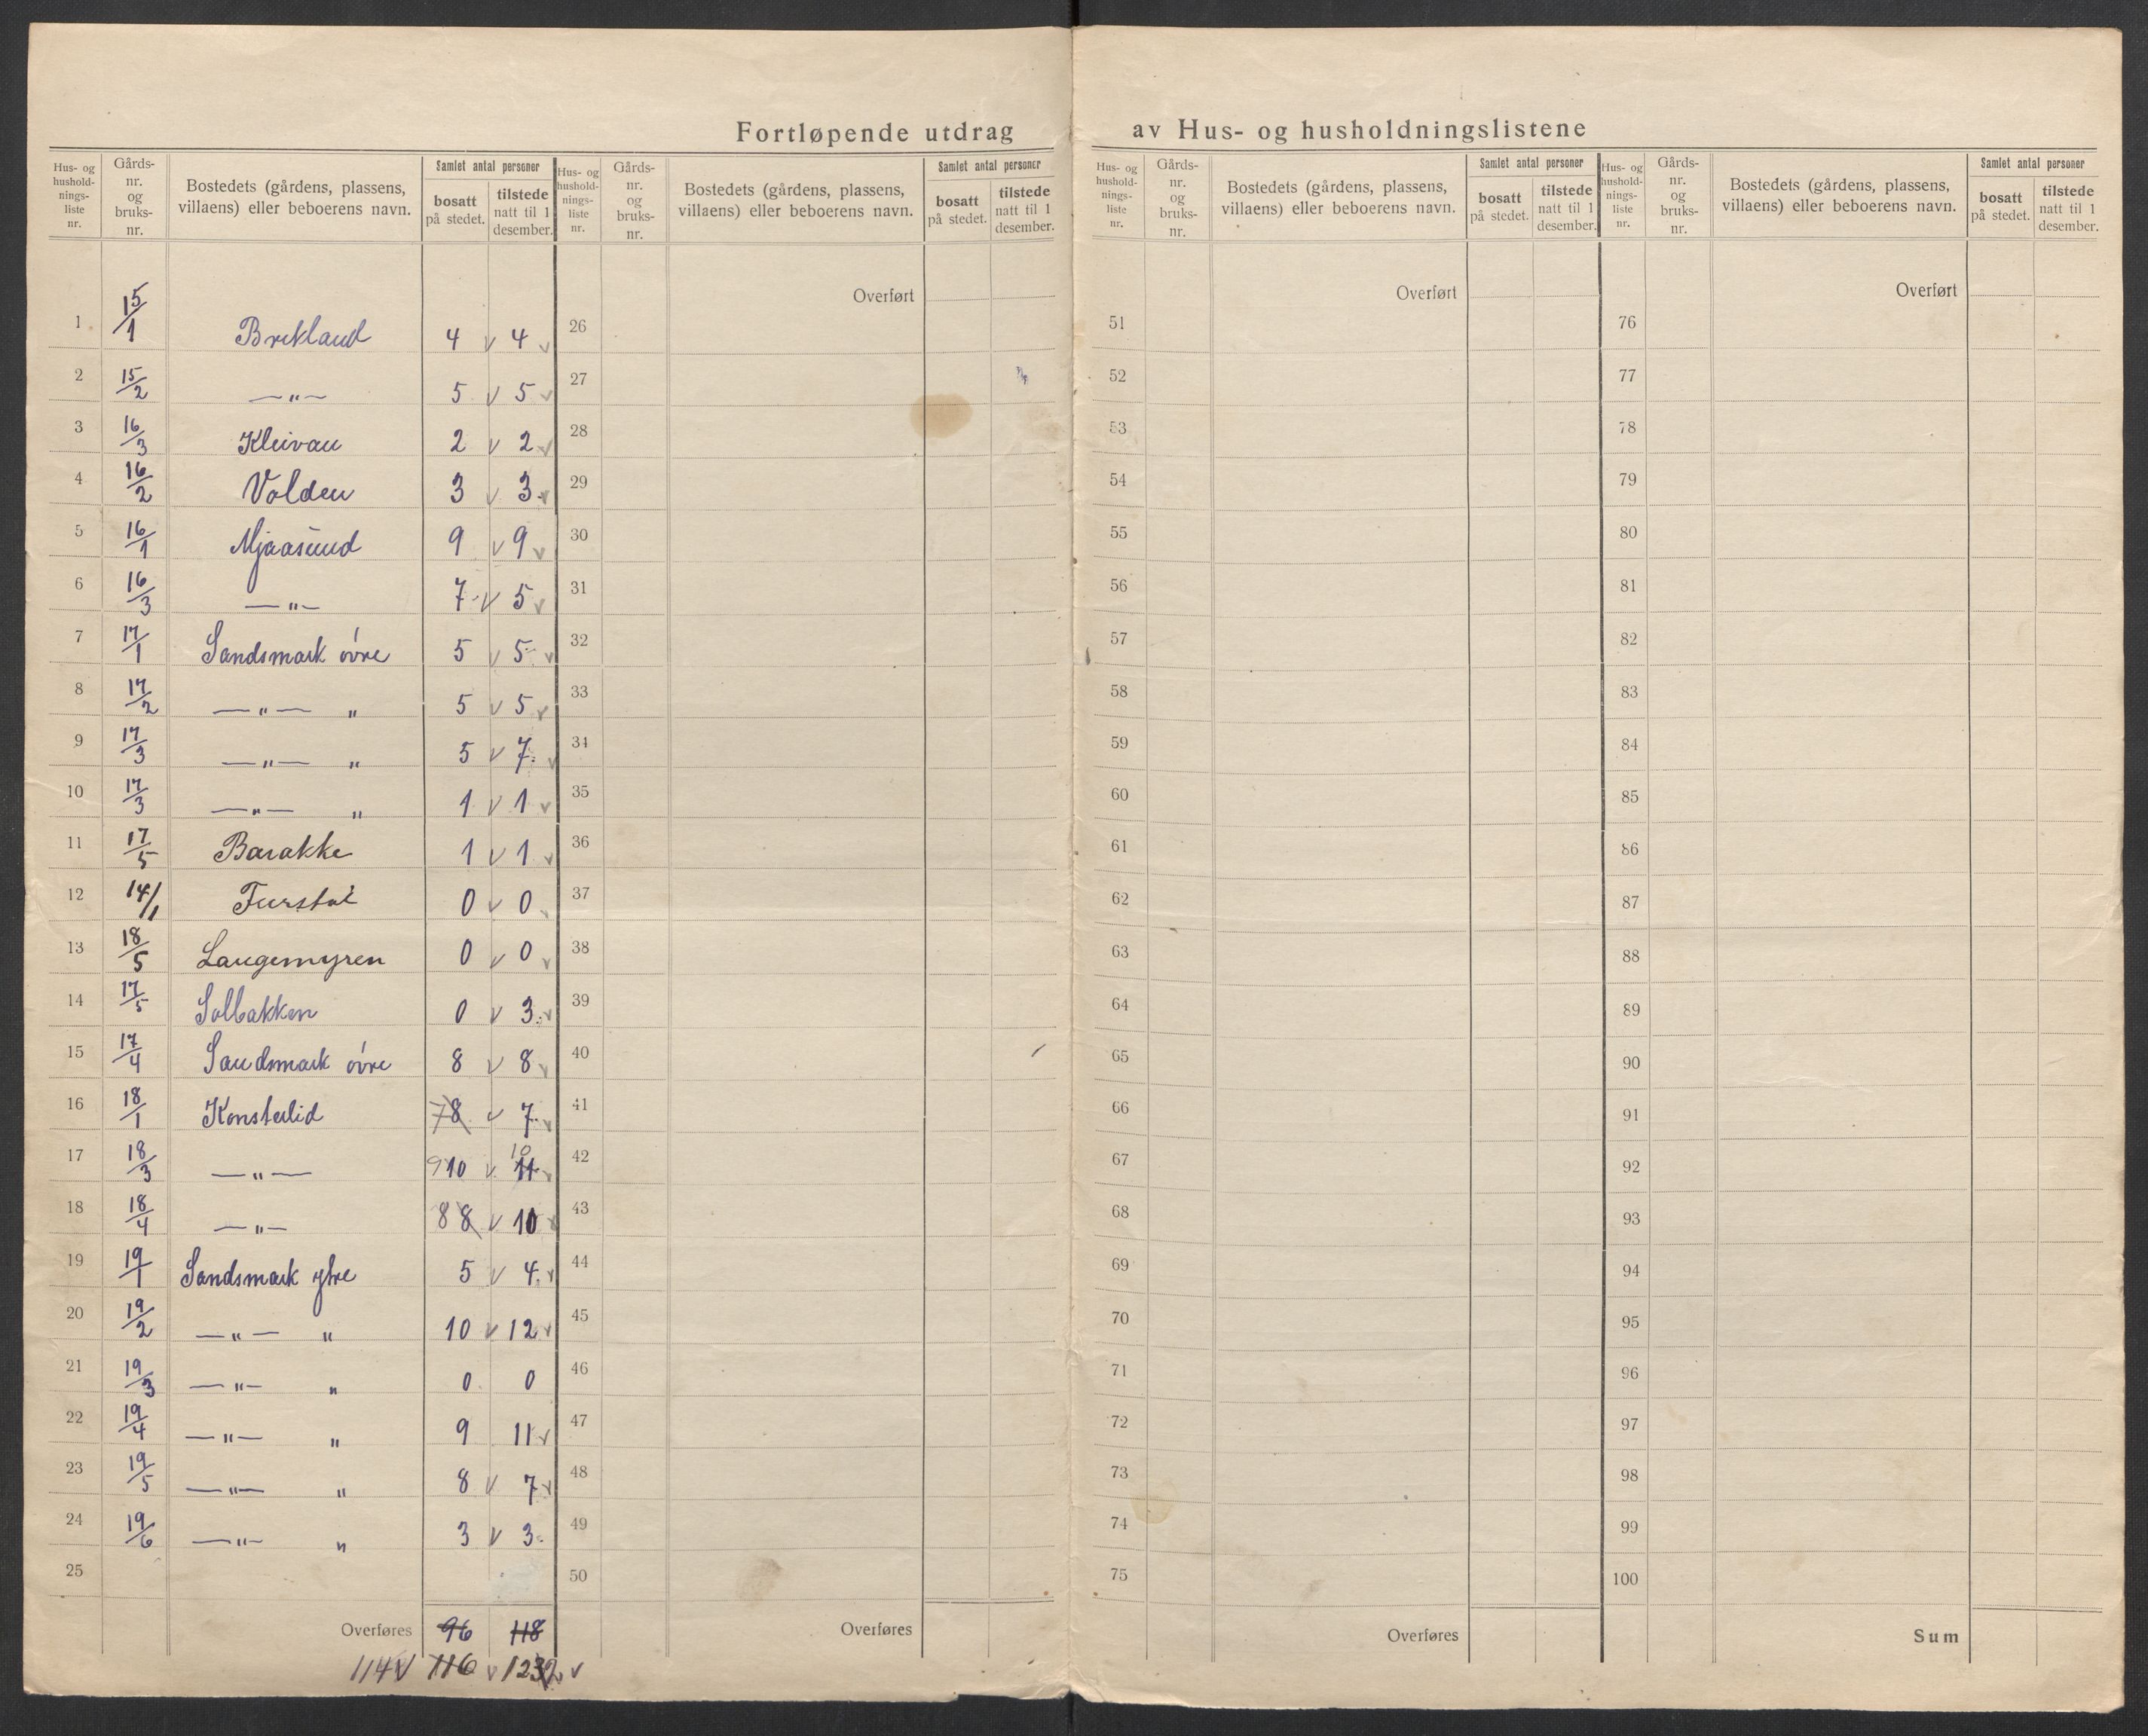 Fortløpende utdrag av Hus- og husholdningslistene
Hus- og hushold-nings-liste nr. | Gårds-nr. og bruks-nr. | Bostedets (gårdens, plassens, villaens) eller beboerens navn. | Samlet antal personer | bosatt på stedet. | tilstede natt til 1 desember.
Hus- og hushold-nings-liste nr. | Gårds-nr. og bruks-nr. | Bostedets (gårdens, plassens, villaens) eller beboerens navn. | Samlet antal personer | bosatt på stedet. | tilstede natt til 1 desember.
Hus- og hushold-nings-liste nr. | Gårds-nr. og bruks-nr. | Bostedets (gårdens, plassens, villaens) eller beboerens navn. | Samlet antal personer | bosatt på stedet. | tilstede natt til 1 desember.
Hus- og hushold-nings-liste nr. | Gårds-nr. og bruks-nr. | Bostedets (gårdens, plassens, villaens) eller beboerens navn. | Samlet antal personer | bosatt på stedet. | tilstede natt til 1 desember.
1 15/1 Brekland 4 v 4 v
2 15/2 —"— 5 v 5 v
3 16/3 Kleivan 2 v 2 v
4 16/2 Volden 3 v 3 v
5 16/1 Mjaasund 9 v 9 v
6 16/3 —"— 7 v 5 v
7 17/1 Sandsmark övre 5 v 5 v
8 17/2 —"— " 5 v 5 v
9 17/3 —"— " 5 v 7 v
10 17/3 —"— " 1 v 1 v
11 17/5 Barakke 1 v 1 v
12 14/1 0 v 0 v
13 18/5 Langemyren 0 v 0 v
14 17/5 Solbakken 0 v 3 v
15 17/4 Sandsmark övre 8 v 8 v
16 18/1 Konsterlid 7 8 v 7 v
17 18/3 —"— 9 10 v 10 11 v
18 18/4 —"— 8 8 v 10 v
19 19/1 Sandsmark ytre 5 v 4 v
20 19/2 —"— " 10 v 12 v
21 19/3 —"— " 0 0
22 19/4 —"— " 9 11 v
23 19/5 —"— " 8 v 7 v
24 19/6 —"— " 3 v 3
25
Overføres 96 118
114 v 116 v 1232 v
Overført
26
27
28
29
30
31
32
33
34
35
36
37
38
39
40
41
42
43
44
45
46
47
48
49
50
Overføres
Overført
51
52
53
54
55
56
57
58
59
60
61
62
63
64
65
66
67
68
69
70
71
72
73
74
75
Overføres
Overført
76
77
78
79
80
81
82
83
84
85
86
87
88
89
90
91
92
93
94
95
96
97
98
99
100
Sum